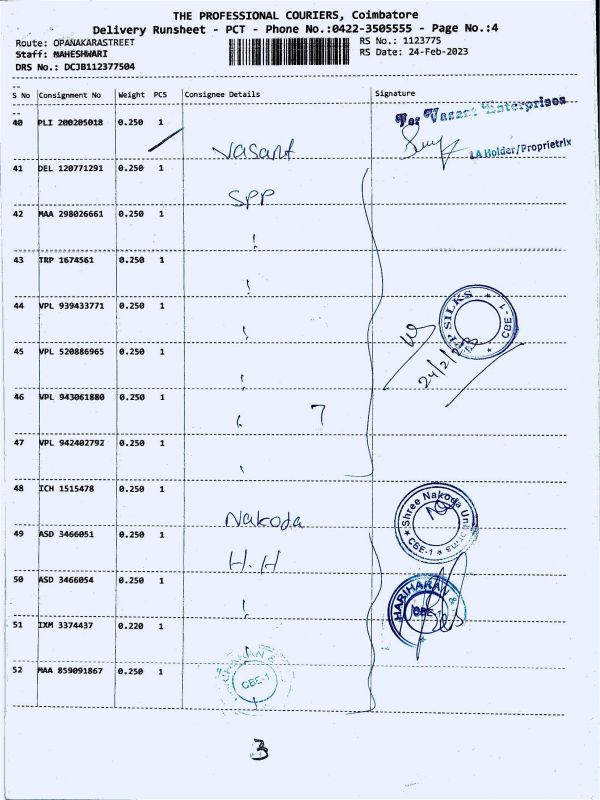 THE PROFESSIONAL COURIERS, Coimbatore
Delivery Runsheet - PCT - Phone No.:0422-3505555 - Page No.:4
Route: OPANAKARASTREET
RS No.: 1123775
Staff: MAHESHWARI
RS Date: 24-Feb-2023
DRS No.: DCJB112377504
S No Consignment No Weight PCS Consignee Details Signature
40 PLI 200205018 0.250 1
For Vasant Enterprises
Vasant
LA Holder/Proprietrix
41 DEL 120771291 0.250 1
SPP
42 MAA 298026661 0.250 1
43 TRP 1674561 0.250 1
44 VPL 939433771 0.250 1
SPP SILKS * CBE-1 *
24/2/23
45 VPL 520886965 0.250 1
46 VPL 943061880 0.250 1
7
47 VPL 942402792 0.250 1
48 ICH 1515478 0.250 1
Nakoda
* Shree Nakoda Uniforms * CBE-1
49 ASD 3466051 0.250 1
H.H
50 ASD 3466054 0.250 1
HARIHARAN &
CBE-1
51 IXM 3374437 0.220 1
52 MAA 859091867 0.250 1
HARIHARAN &
CBE-1
3